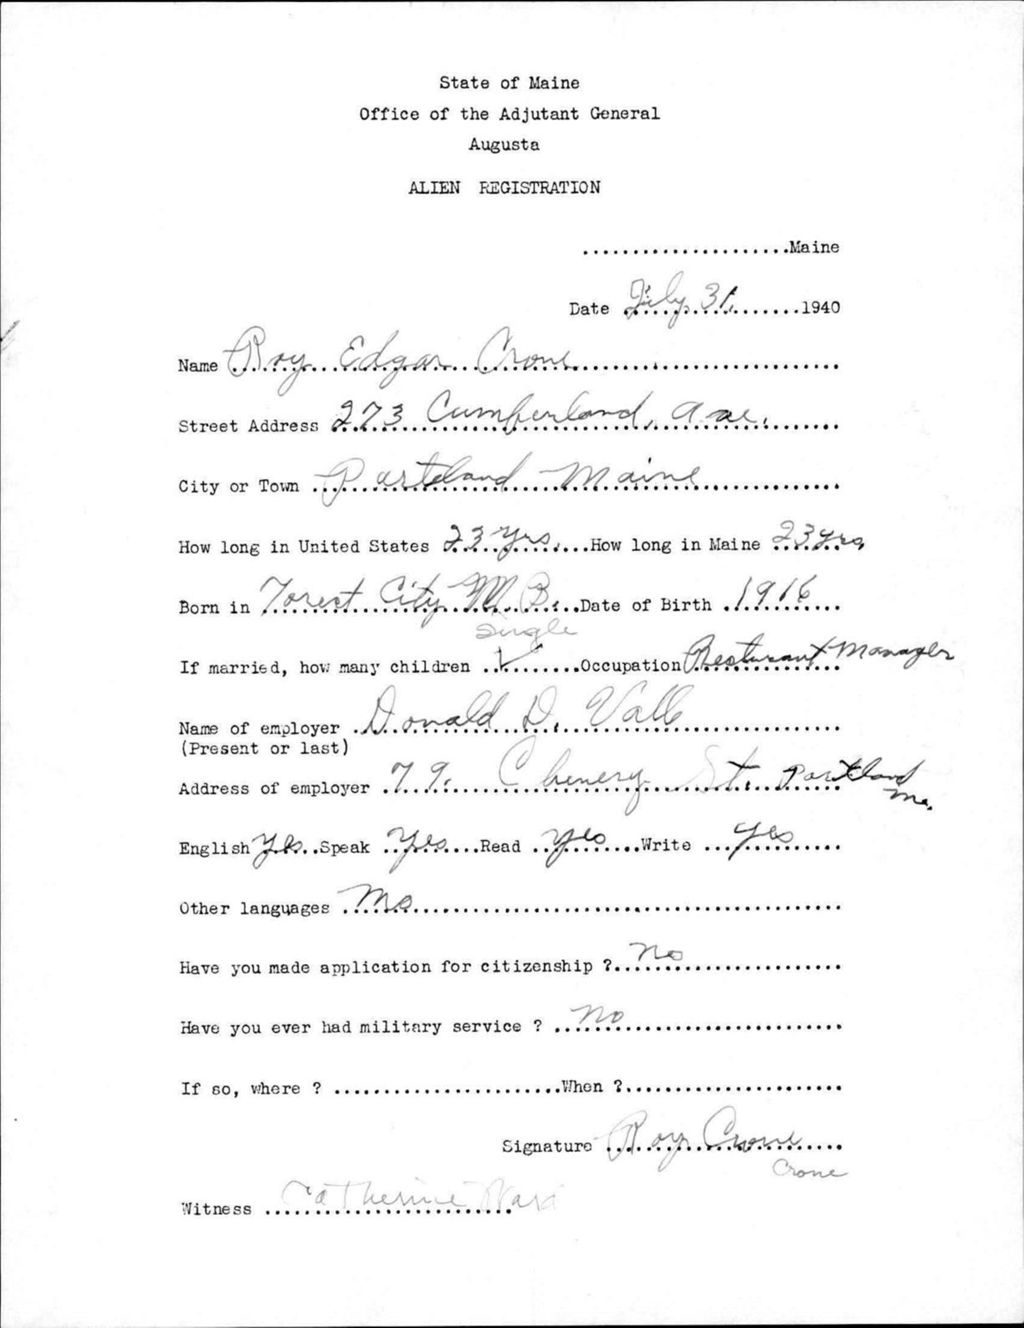 State of Maine
Office of the Adjutant General
Augusta
ALIEN REGISTRATION
.....................Maine
Date July 31, 1940
Name Roy Edgar Crone
Street Address 273 Cumberland, Ave.
City or Town Portland Maine
How long in United States 23 yrs. How long in Maine 23 yrs.
Born in Forest City N B. Date of Birth 1916
Single
If married, how many children ✓ Occupation Resturant Manager
Name of employer Donald D.
(Present or last)
Address of employer 79. Chenery St. Portland
Me.
English Yes Speak Yes Read Yes Write Yes
Other languages No
Have you made application for citizenship ? No
Have you ever had military service ? No
If so, where ? .......................When ?......................
Signature Roy Crone
Crone
Witness Catherine Ward